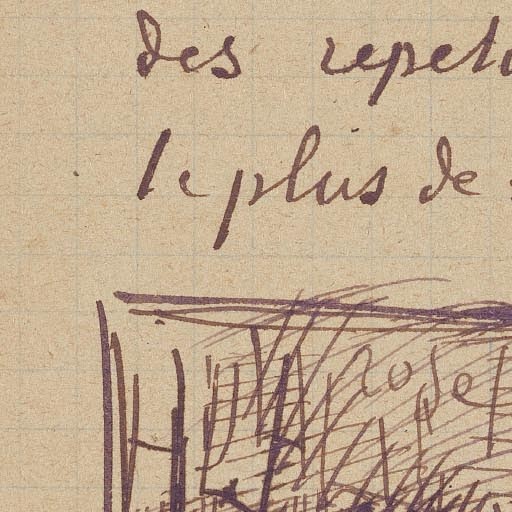 des repeto
le plus de
rose